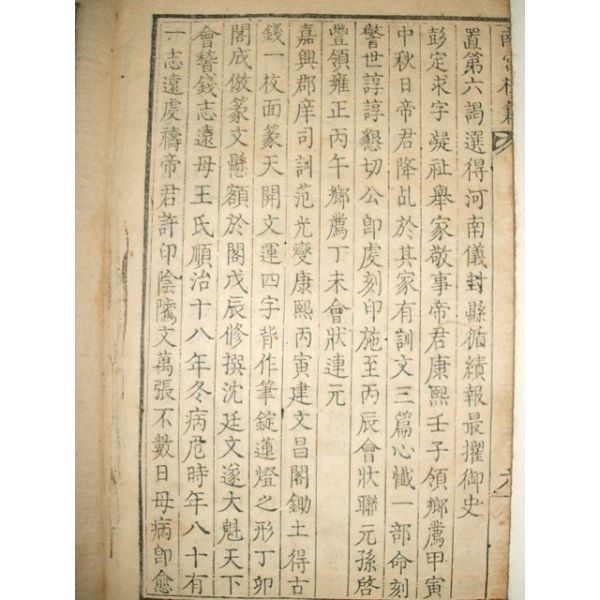 置第六謁選得河南儀封縣循績報最擢御史
彭定求字凝祉舉家敬事帝君康熙壬子領鄉薦甲寅
中秋日帝君降乩於其家有訓文三篇心懺一部命刻
警世諄諄懇切公卽虔刻印施至丙辰會狀聯元孫啓
豐領雍正丙午鄉薦丁未會狀連元
嘉興郡庠司訓范光燮康熙丙寅建文昌閣鋤土得古
錢一枚面篆天開文運四字背作筆錠蓮燈之形丁卯
閣成倣篆文懸額於閣戊辰修撰沈廷文遂大魁天下
會聲錢志遠母王氏順治十八年冬病危時年八十有
一志遠虔禱帝君許印陰騭文萬張不數日母病卽愈
六